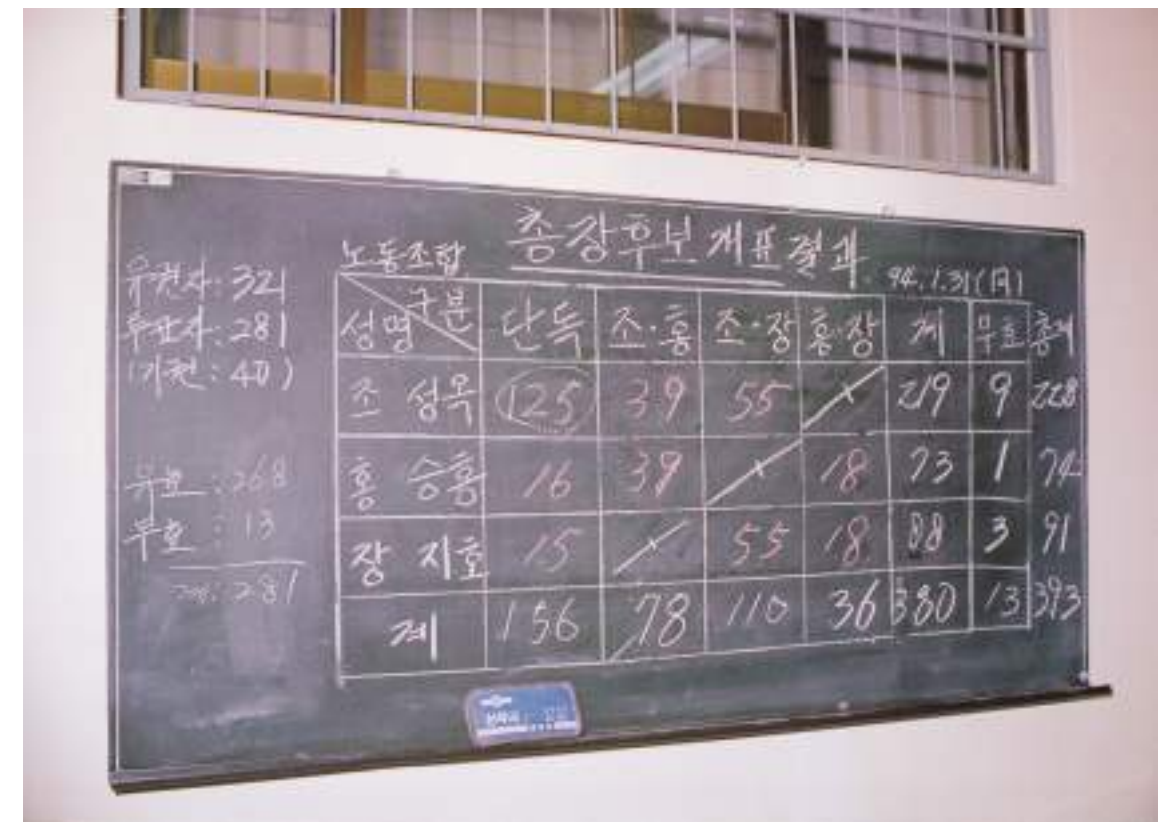 총장후보개표결과
노동조합
94.1.31(月)
유권자:321
투표자:281
(기권:40)
유효:268
무효:13
계:281
구분 성명 단독 조·홍 조·장 홍·장 계 무효 총계
조성옥 125 39 55 219 9 228
홍승홍 16 39 18 73 1 74
장지호 15 55 18 88 3 91
계 156 78 110 36 380 13 393